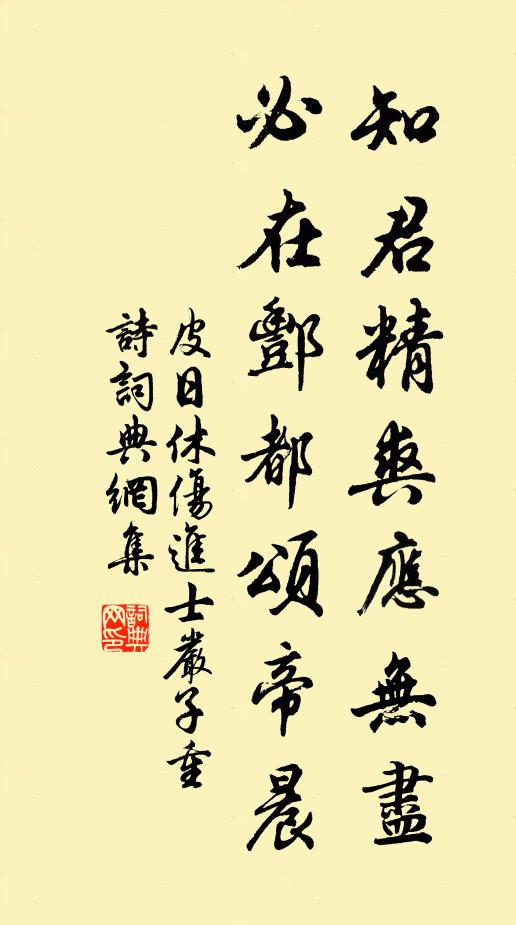 知君精爽應無盡
必在酆都頌帝晨
皮日休傷進士嚴子重
詩詞典網集
詞典